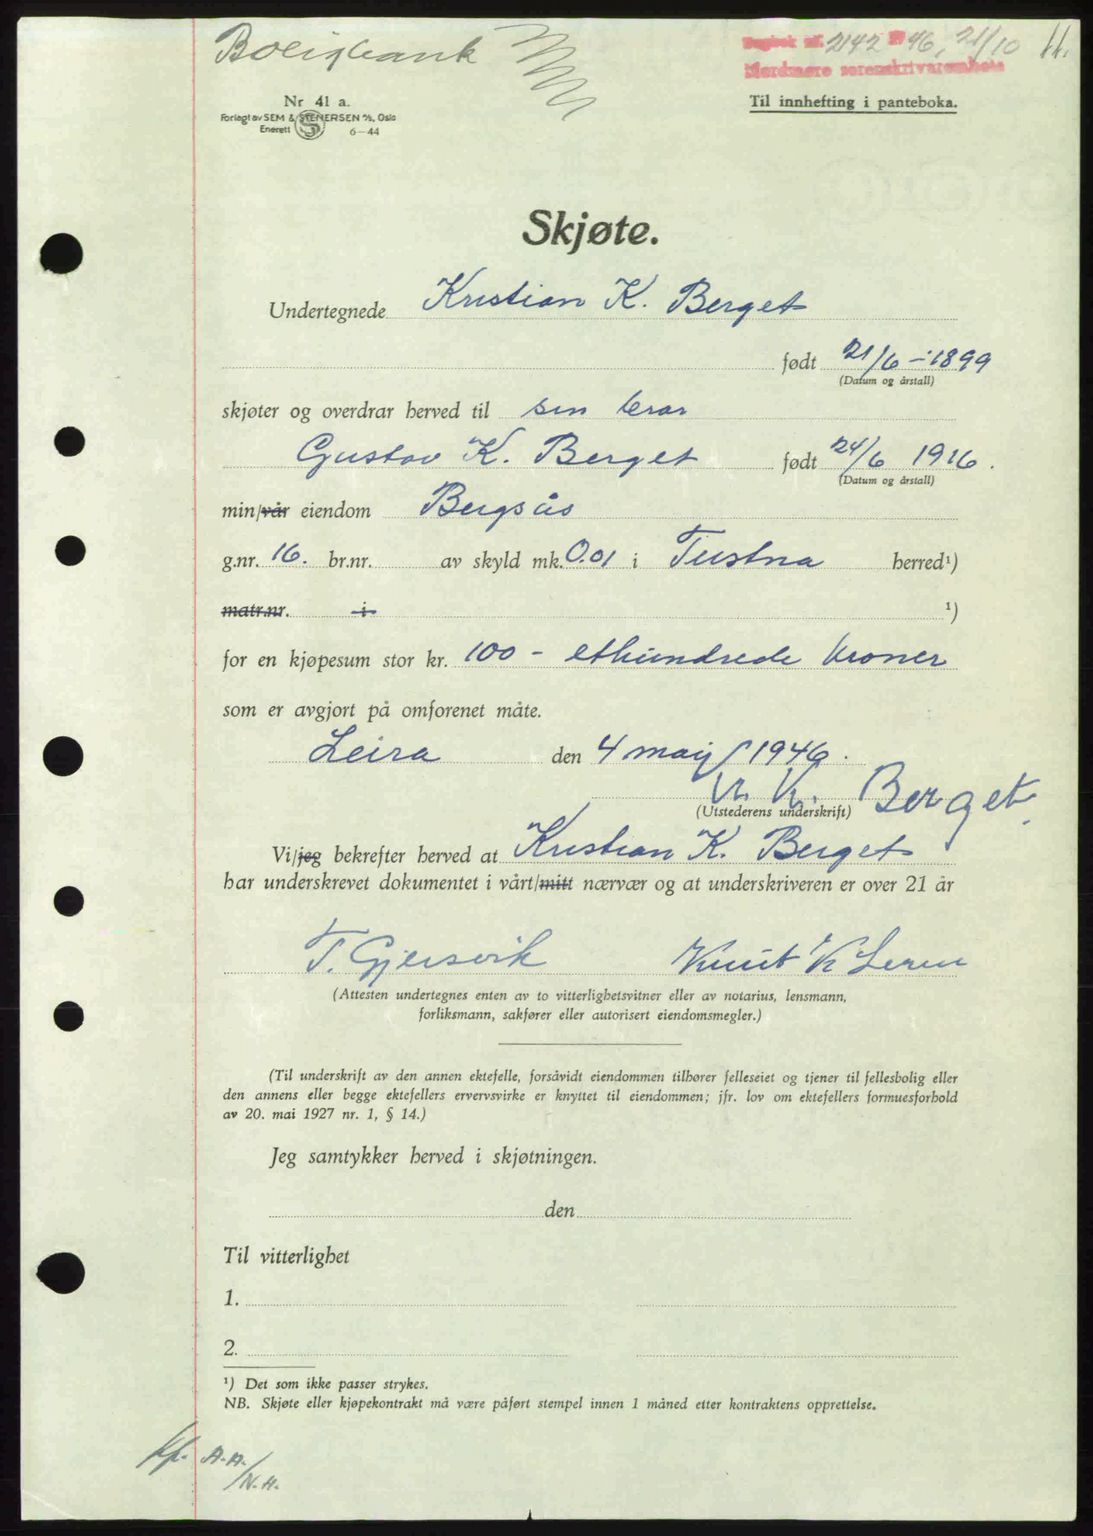 Boligbank
Dagbok nr. 2142 1946, 21/10 11.
Nordmøre sorenskrivarembete
Nr 41 a.
Forlagt av SEM & STENERSEN A/S, Oslo
Enerett 6—44
Til innhefting i panteboka.
Skjøte.
Undertegnede Kristian K. Berget
født 21/6 – 1899
(Datum og årstall)
skjøter og overdrar herved til sin bror
Gustav K. Berget født 24/6 1916.
(Datum og årstall)
min/vår eiendom Bergsås
g.nr. 16. br.nr. av skyld mk. 0.01 i Tustna herred¹)
matr.nr. i ¹)
for en kjøpesum stor kr. 100 – ethundrede kroner
som er avgjort på omforenet måte.
Leira den 4 mai 1946.
K. K. Berget.
(Utstederens underskrift)
Vi/jeg bekrefter herved at Kristian K. Berget
har underskrevet dokumentet i vårt/mitt nærvær og at underskriveren er over 21 år
T. Gjersvik Knut K Leren
(Attesten undertegnes enten av to vitterlighetsvitner eller av notarius, lensmann,
forliksmann, sakfører eller autorisert eiendomsmegler.)
(Til underskrift av den annen ektefelle, forsåvidt eiendommen tilhører felleseiet og tjener til fellesbolig eller
den annens eller begge ektefellers ervervsvirke er knyttet til eiendommen; jfr. lov om ektefellers formuesforhold
av 20. mai 1927 nr. 1, § 14.)
Jeg samtykker herved i skjøtningen.
den
Til vitterlighet
1.
2.
¹) Det som ikke passer strykes.
NB. Skjøte eller kjøpekontrakt må være påført stempel innen 1 måned etter kontraktens opprettelse.
kp. A.A.
/N.H.